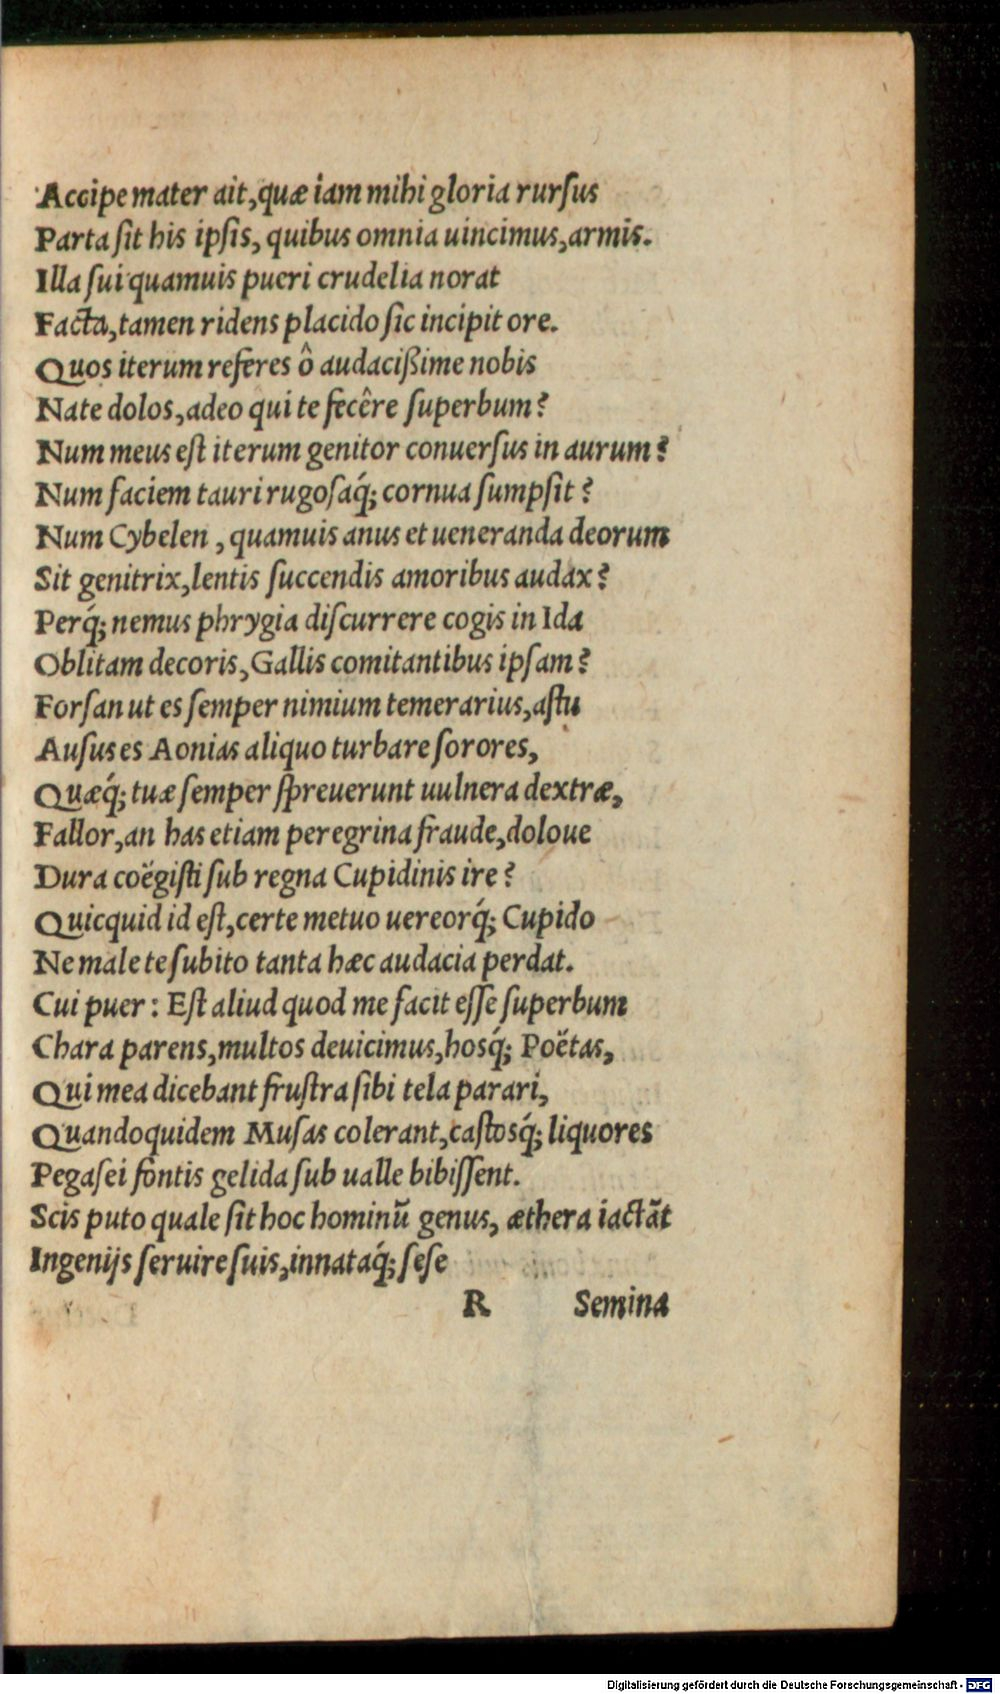 Accipe mater ait, quæ iam mihi gloria rurſus
Parta ſit his ipſis, quibus omnia uincimus, armis.
Illa ſui quamuis pueri crudelia norat
Facta, tamen ridens placido ſic incipit ore.
Quos iterum referes ô audacißime nobis
Nate dolos, adeo qui te fecêre ſuperbum?
Num meus eſt iterum genitor conuerſus in aurum?
Num faciem tauri rugoſaq́; cornua ſumpſit?
Num Cybelen, quamuis anus et ueneranda deorum
Sit genitrix, lentis ſuccendis amoribus audax?
Perq́; nemus phrygia diſcurrere cogis in Ida
Oblitam decoris, Gallis comitantibus ipſam?
Forſan ut es ſemper nimium temerarius, aſtu
Auſus es Aonias aliquo turbare ſorores,
Quæq́; tuæ ſemper ſpreuerunt uulnera dextræ,
Fallor, an has etiam peregrina fraude, doloue
Dura coëgiſti ſub regna Cupidinis ire?
Quicquid id eſt, certe metuo uereorq́; Cupido
Ne male te ſubito tanta hæc audacia perdat.
Cui puer: Eſt aliud quod me facit eſſe ſuperbum
Chara parens, multos deuicimus, hosq́; Poëtas,
Qui mea dicebant fruſtra ſibi tela parari,
Quandoquidem Muſas colerant, caſtosq́; liquores
Pegaſei fontis gelida ſub ualle bibiſſent.
Scis puto quale ſit hoc hominũ genus, æthera iactãt
Ingenijs ſeruire ſuis, innataq́; ſeſe
R Semina
Digitalisierung gefördert durch die Deutsche Forschungsgemeinschaft - DFG